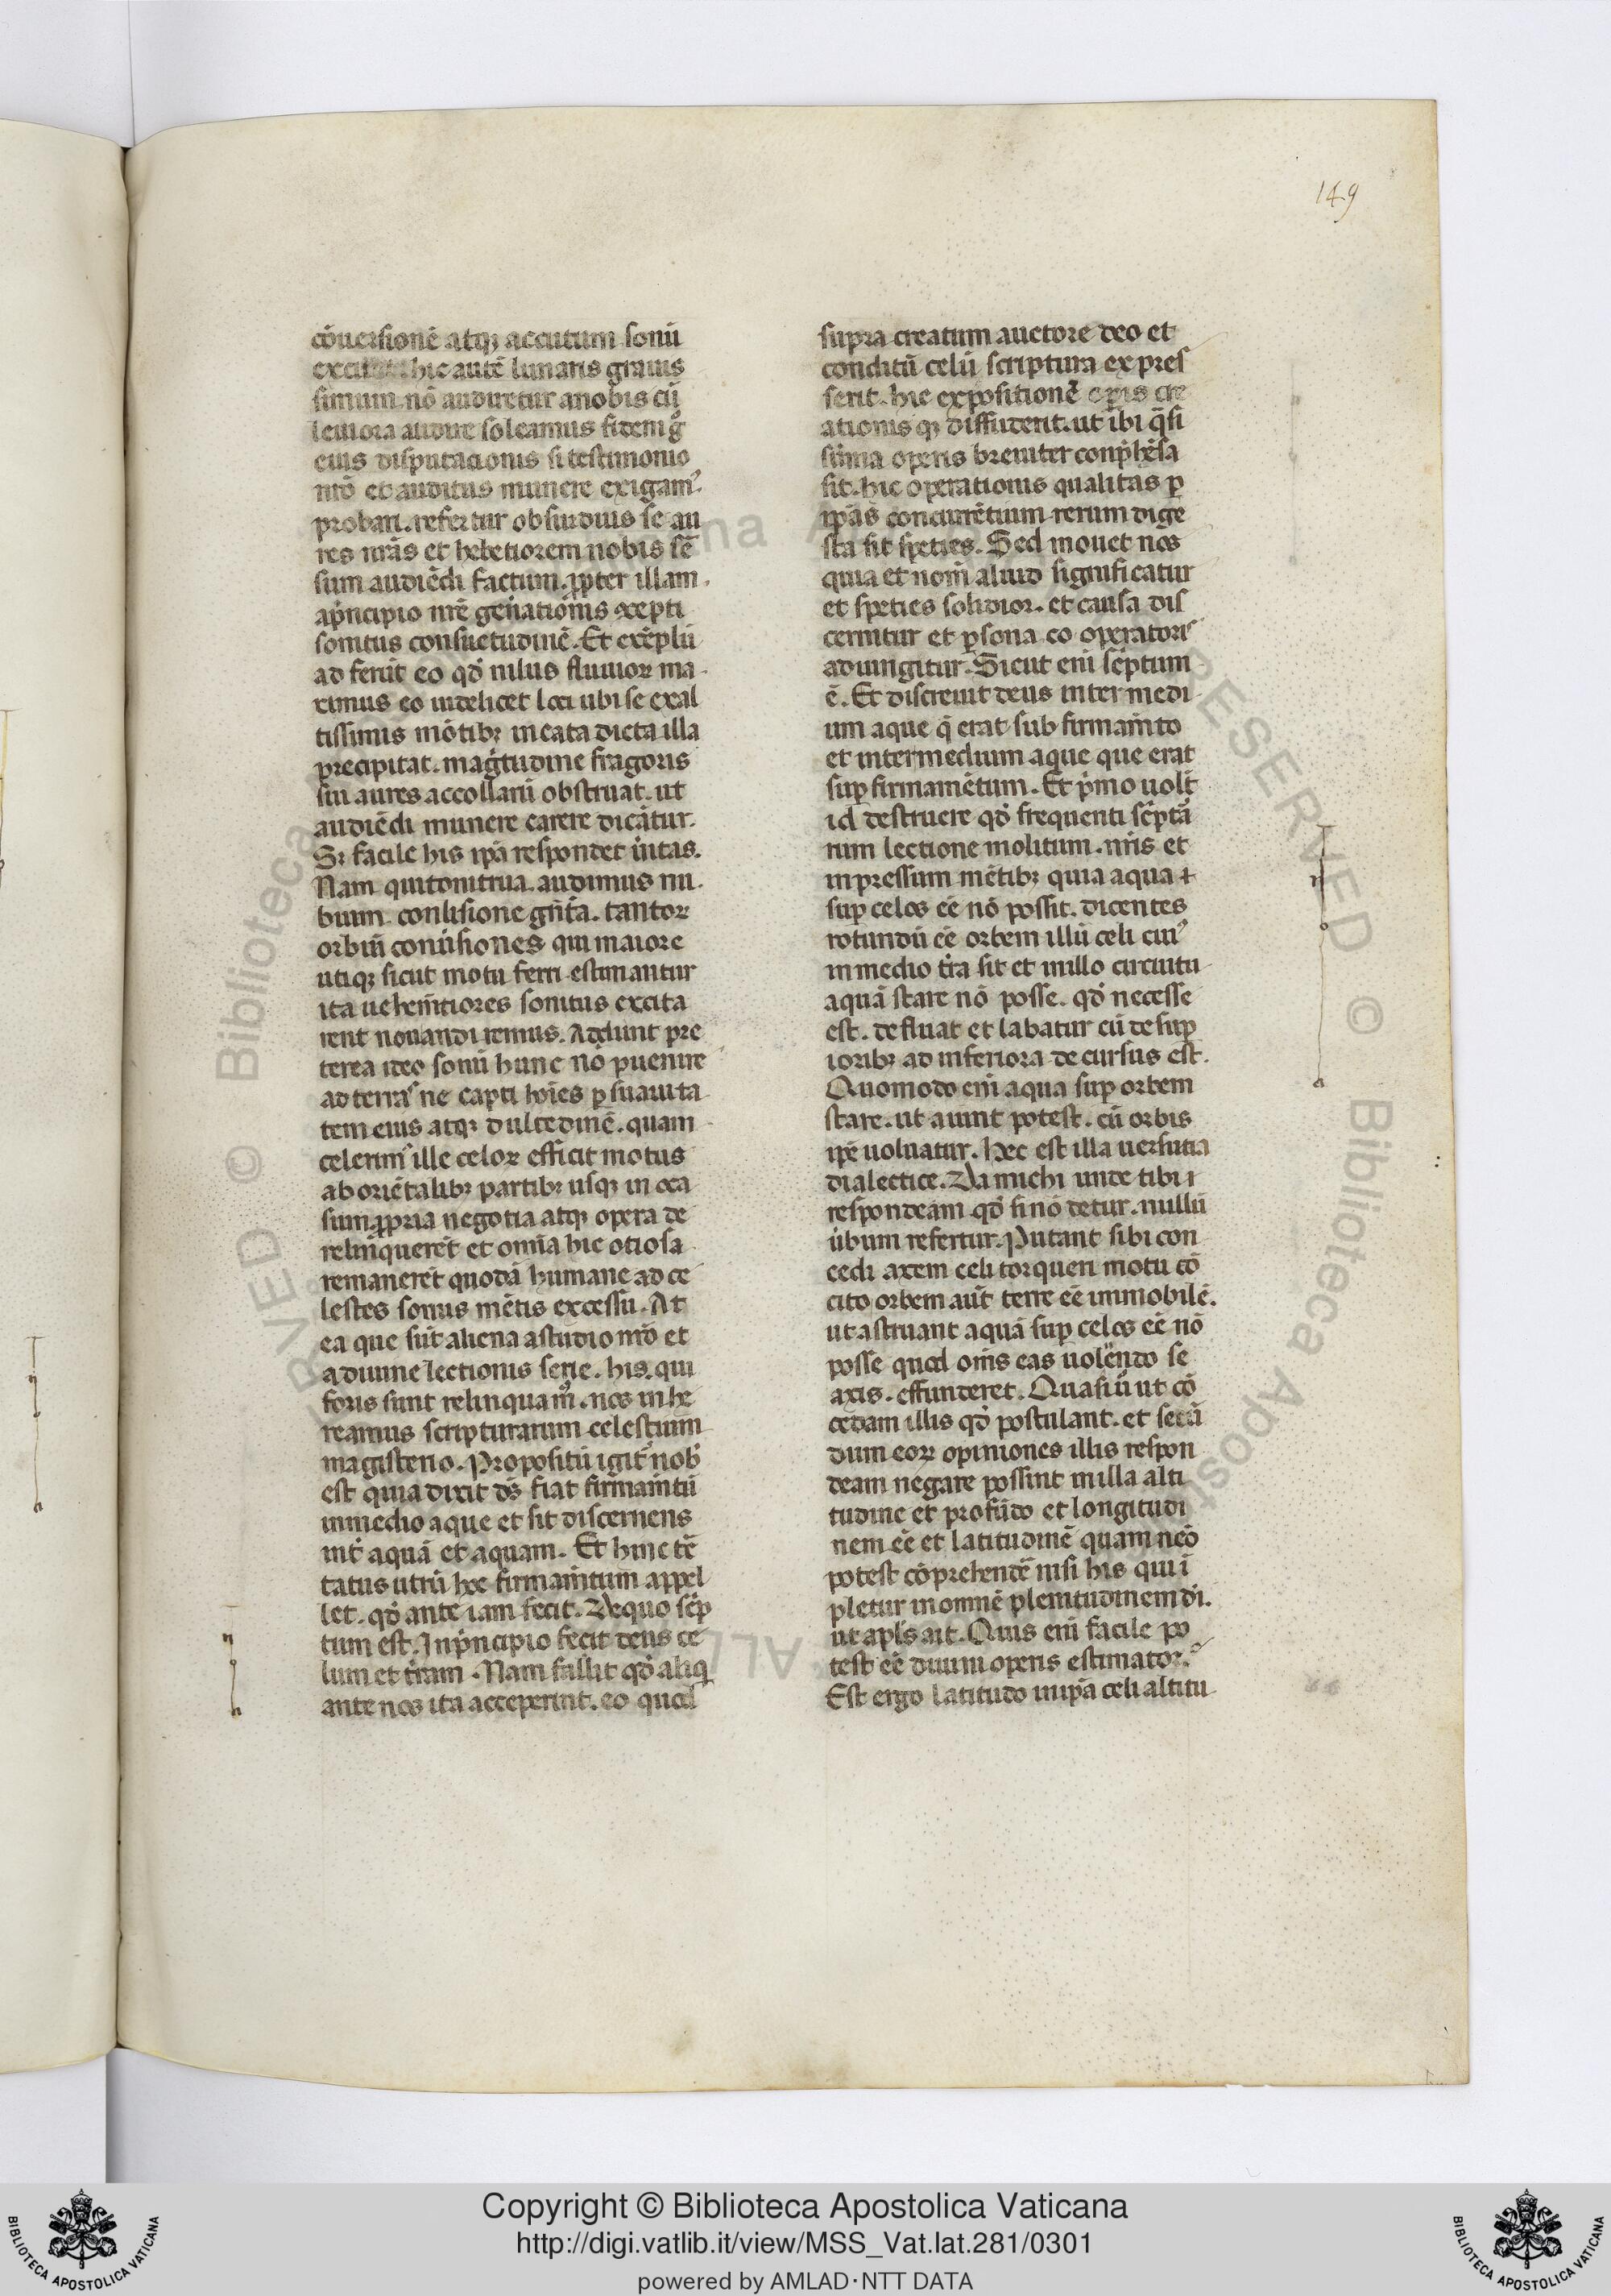 149
cōuersionē atqꝫ accutum sonū
hic autē lunaris grauis
simum nō audiretur anobis cū
leuiora audire soleamus fidem gͦ
eius disputacionis si testimonio
nr̄o et auditus munere exigamꝰ
probari. refertur obsurduis se au
res nr̄as et hebetiorem nobis sē
sum audiēdi factum. ꝓpter illam
apͥncipio nr̄e gen̄ationis cepti
sonitus consuetudinē. Et exēplū
ad ferūt eo qd̓ nilus fluuioꝝ ma
ximus eo uidelicet loci ubi se exal
tissimis mōtibꝫ in cata dicta illa
precipitat. mag̓tudine fragoris
sui aures accollarū obstruat. ut
audiēdi munere carere dicātur.
Sꝫ facile his ip̄a respondet ūitas.
Nam qui tonitrua audimus nu
bium conlisione gn̄t̄a. tantoꝝ
orbiū conūsiones qui maiore
utiqꝫ sicut motu ferri estimantur
ita uehem̄tiores sonitus excita
rent nonaudiremus. Addunt pre
terea ideo sonū hunc nō ꝑuenire
ad terrāꝰ ne capti hoīes ꝑ suauita
tem eius atqꝫ dulcedinē. quam
celerimꝰ ille celoꝝ efficit motus
ab oriētalibꝫ partibꝫ usqꝫ in occa
sum ꝓpria negotia atqꝫ opera de
relinquerēt et omīa hic otiosa
remanerēt quodā humane ad ce
lestes sonus mētis excessu. At
ea que sūt aliena astudio nr̄o et
a diuine lectionis serie. his. qui
foris sunt relinquam̄ꝰ. nos inhe
reamus scripturarum celestium
magisterio. Propositū igitͬ nob̓
est quia dixit ds̄ fiat firmam̄tū
inmedio aque et sit discernens
int̓ aquā et aquam. Et hinc tē
tatus utrū hoc firmam̄tum appel
let. qd̓ ante iam fecit. De quo sc̄ͥp
tum est. Inpͥncipio fecit deus ce
lum et tr̄am. Nam fallit qd̓ aliqͥ
ante nos ita acceperint. eo quod
supra creatum auctore deo et
conditū celū scriptura ex pres
serit. hic expositionē opis cre
ationis qꝫ diffuderit. ut ibi qͣsi
sūma operis breuiter conp̄hēsa
sit. hic operationis qualitas ꝑ
ip̄as concurrētium rerum dige
sta sit speties. Sed mouet nos
quia et nom̄ aliud significatur
et speties solidior. et causa dis
cernitur et ꝑsona co operatorisͨ
adiungitur. Sicut eni sc̄ptum
ē. Et discreuit deus inter medi
um aque q̄ erat sub firmam̄to
et intermedium aque que erat
suꝑ firmamētum. Et pͥmo uolt̄
id destruere qd̓ frequenti sc̄ptaͣ
rum lectione molitum. nr̄is et
inpressum mētibꝫ quia aqua
suꝑ celos eē nō possit. dicentes
rotundū eē orbem illū celi cuiꝰ
inmedio tr̄a sit et in illo circuitu
aquā stare nō posse. qd̓ necesse
est. defluat et labatur cū de suꝑ
ioribꝫ ad inferiora decursus est.
Quomodo eni aqua suꝑ orbem
stare. ut aiunt potest. cū orbis
ip̄e uoluatur. hec est illa uersutia
dialectice. Da michi unde tibi
respondeam qd̓ si nō detur. nullū
ūbum refertur. Putant sibi con
cedi axem celi torqueri motu cō
cito orbem aūt terre eē immobilē.
ut astruant aquā suꝑ celos eē nō
posse quod omīs eas uoluendo se
axis. effunderet. Quasi ū ut cō
cedam illis qd̓ postulant. et secū
dum eoꝝ opiniones illis respon
deam negare possint in illa alti
tudine et profūdo et longitudi
nem eē et latitudinē quam nēo
potest cōprehendē nisi his qui ī
pletur inomnē plenitudinem dī.
ut apl̄s ait. Quis eni facile po
test eē diuini operis estimator.
Est ergo latitudo inip̄a celi altitu
Copyright © Biblioteca Apostolica Vaticana
http://digi.vatlib.it/view/MSS_Vat.lat.281/0301
powered by AMLAD·NTT DATA